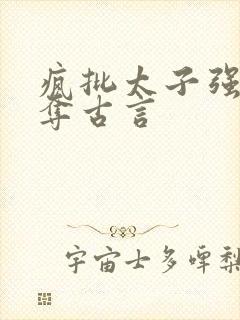 疯批太子强
夺古言
宇宙士多啤梨